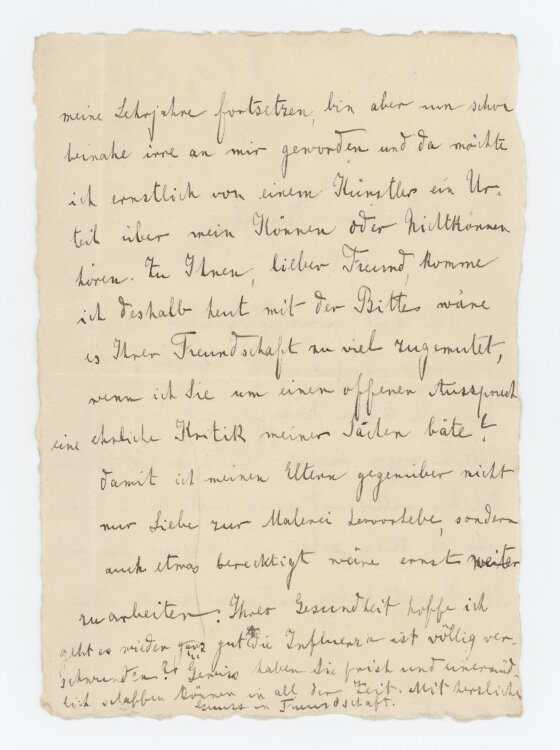 meine Lehrjahre fortsetzen, bin aber nun schon
beinahe irre an mir geworden und da möchte
ich ernstlich von einem Künstler ein Ur-
teil über mein Können oder Nichtkönnen
hören. Zu Ihnen, lieber Freund, komme
ich deshalb heut mit der Bitte: wäre
es Ihrer Freundschaft zu viel zugemutet,
wenn ich Sie um einen offenen Ausspruch
eine ehrliche Kritik meiner Sachen bäte?
damit ich meinen Eltern gegenüber nicht
nur Liebe zur Malerei hervorhebe, sondern
auch etwas berechtigt wäre ernst weiter
zu arbeiten. Ihrer Gesundheit hoffe ich
geht es wieder ganz gut die Influenza ist völlig ver-
schwunden? Gewiss haben Sie frisch und unermüd-
lich schaffen können in all der Zeit. Mit herzlichem
Gruss in Freundschaft.